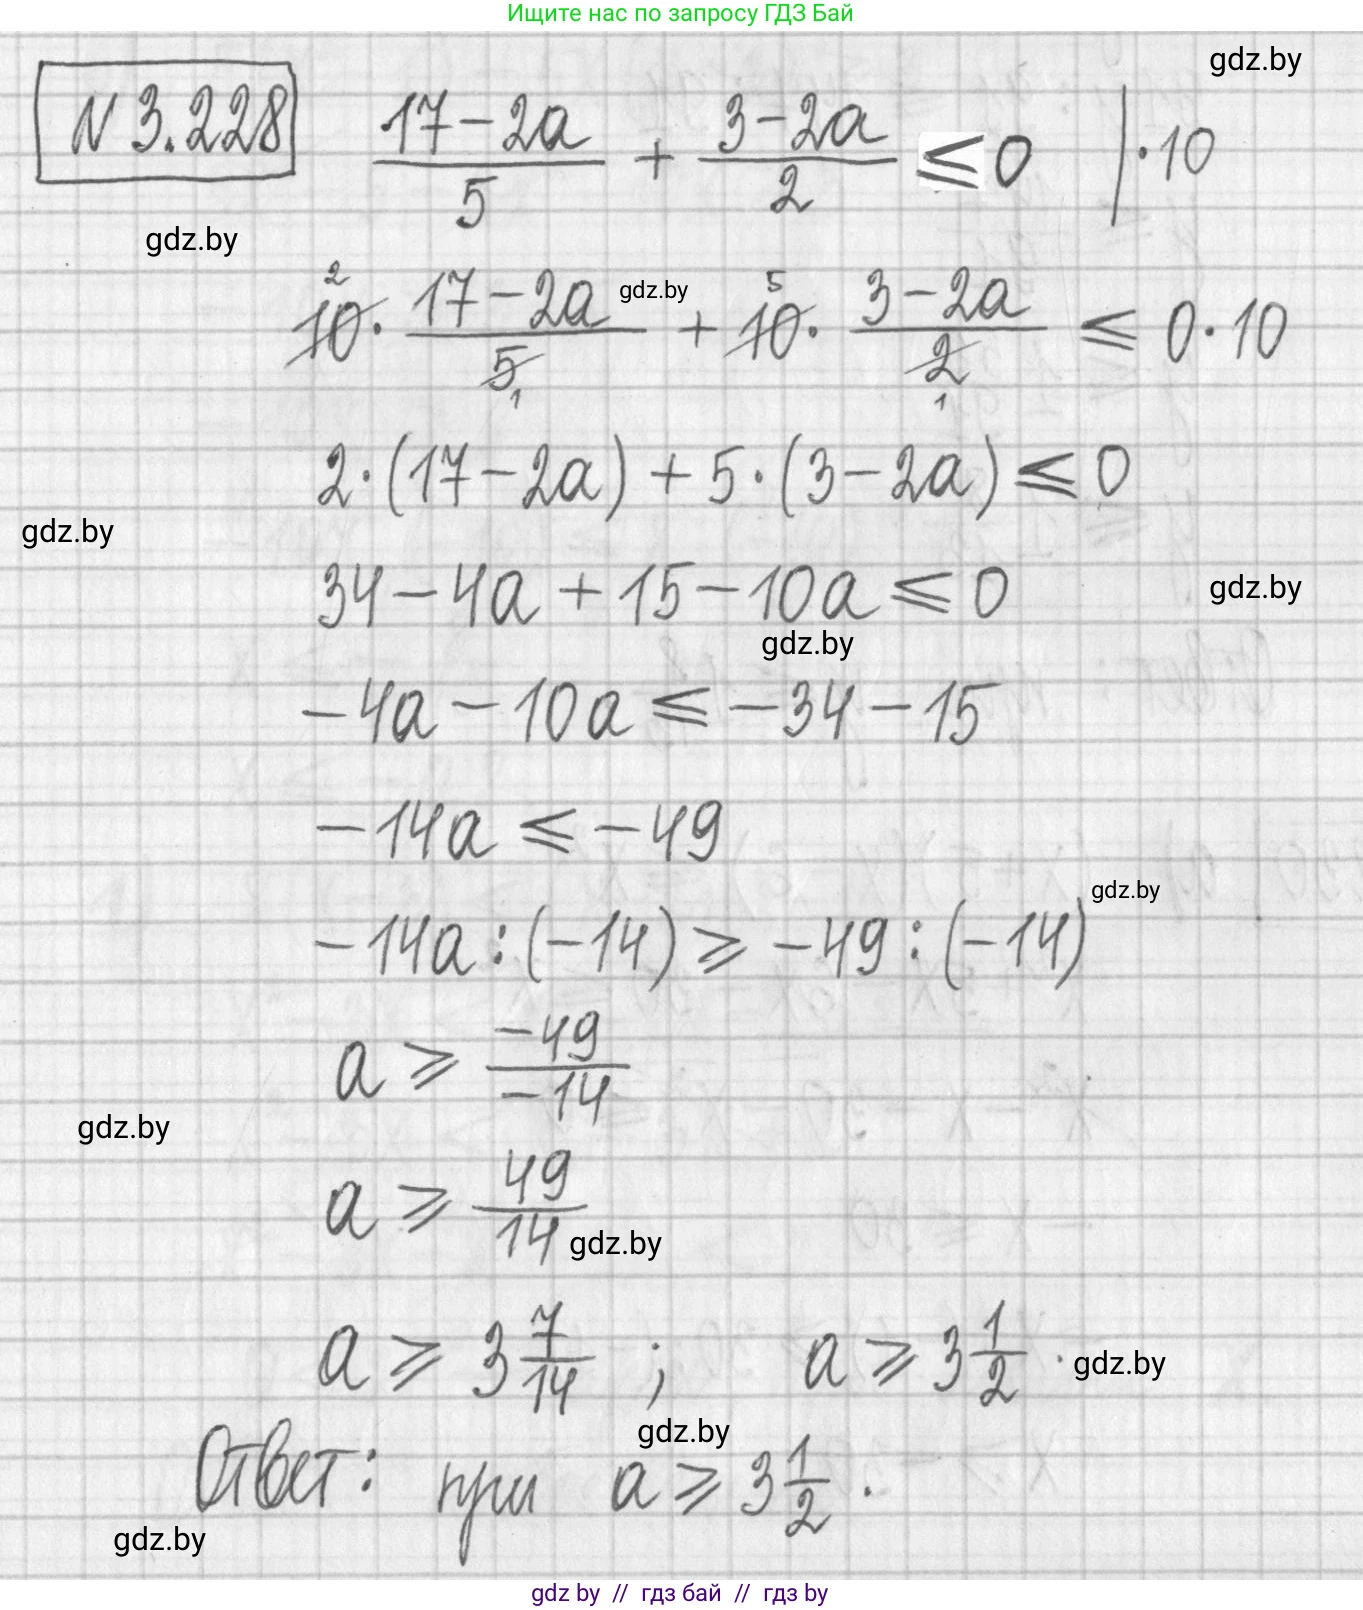 Ищите нас по запросу ГДЗ Бай
gdz.by
N 3.228 (17-2a)/5 + (3-2a)/2 ⩽ 0 |·10
gdz.by
2 5
10 · (17-2a)/5 + 10 · (3-2a)/2 ⩽ 0·10
gdz.by
1 1
2·(17-2a)+5·(3-2a)⩽0
gdz.by
34-4a+15-10a⩽0
gdz.by
gdz.by
-4a-10a⩽-34-15
-14a⩽-49
gdz.by
-14a:(-14)⩾-49:(-14)
a⩾-49/-14
gdz.by
a⩾49/14
gdz.by
a⩾3 7/14 ; a⩾3 1/2 .
gdz.by
gdz.by
Ответ: при a⩾3 1/2 .
gdz.by
gdz by // гдз бай // гдз by